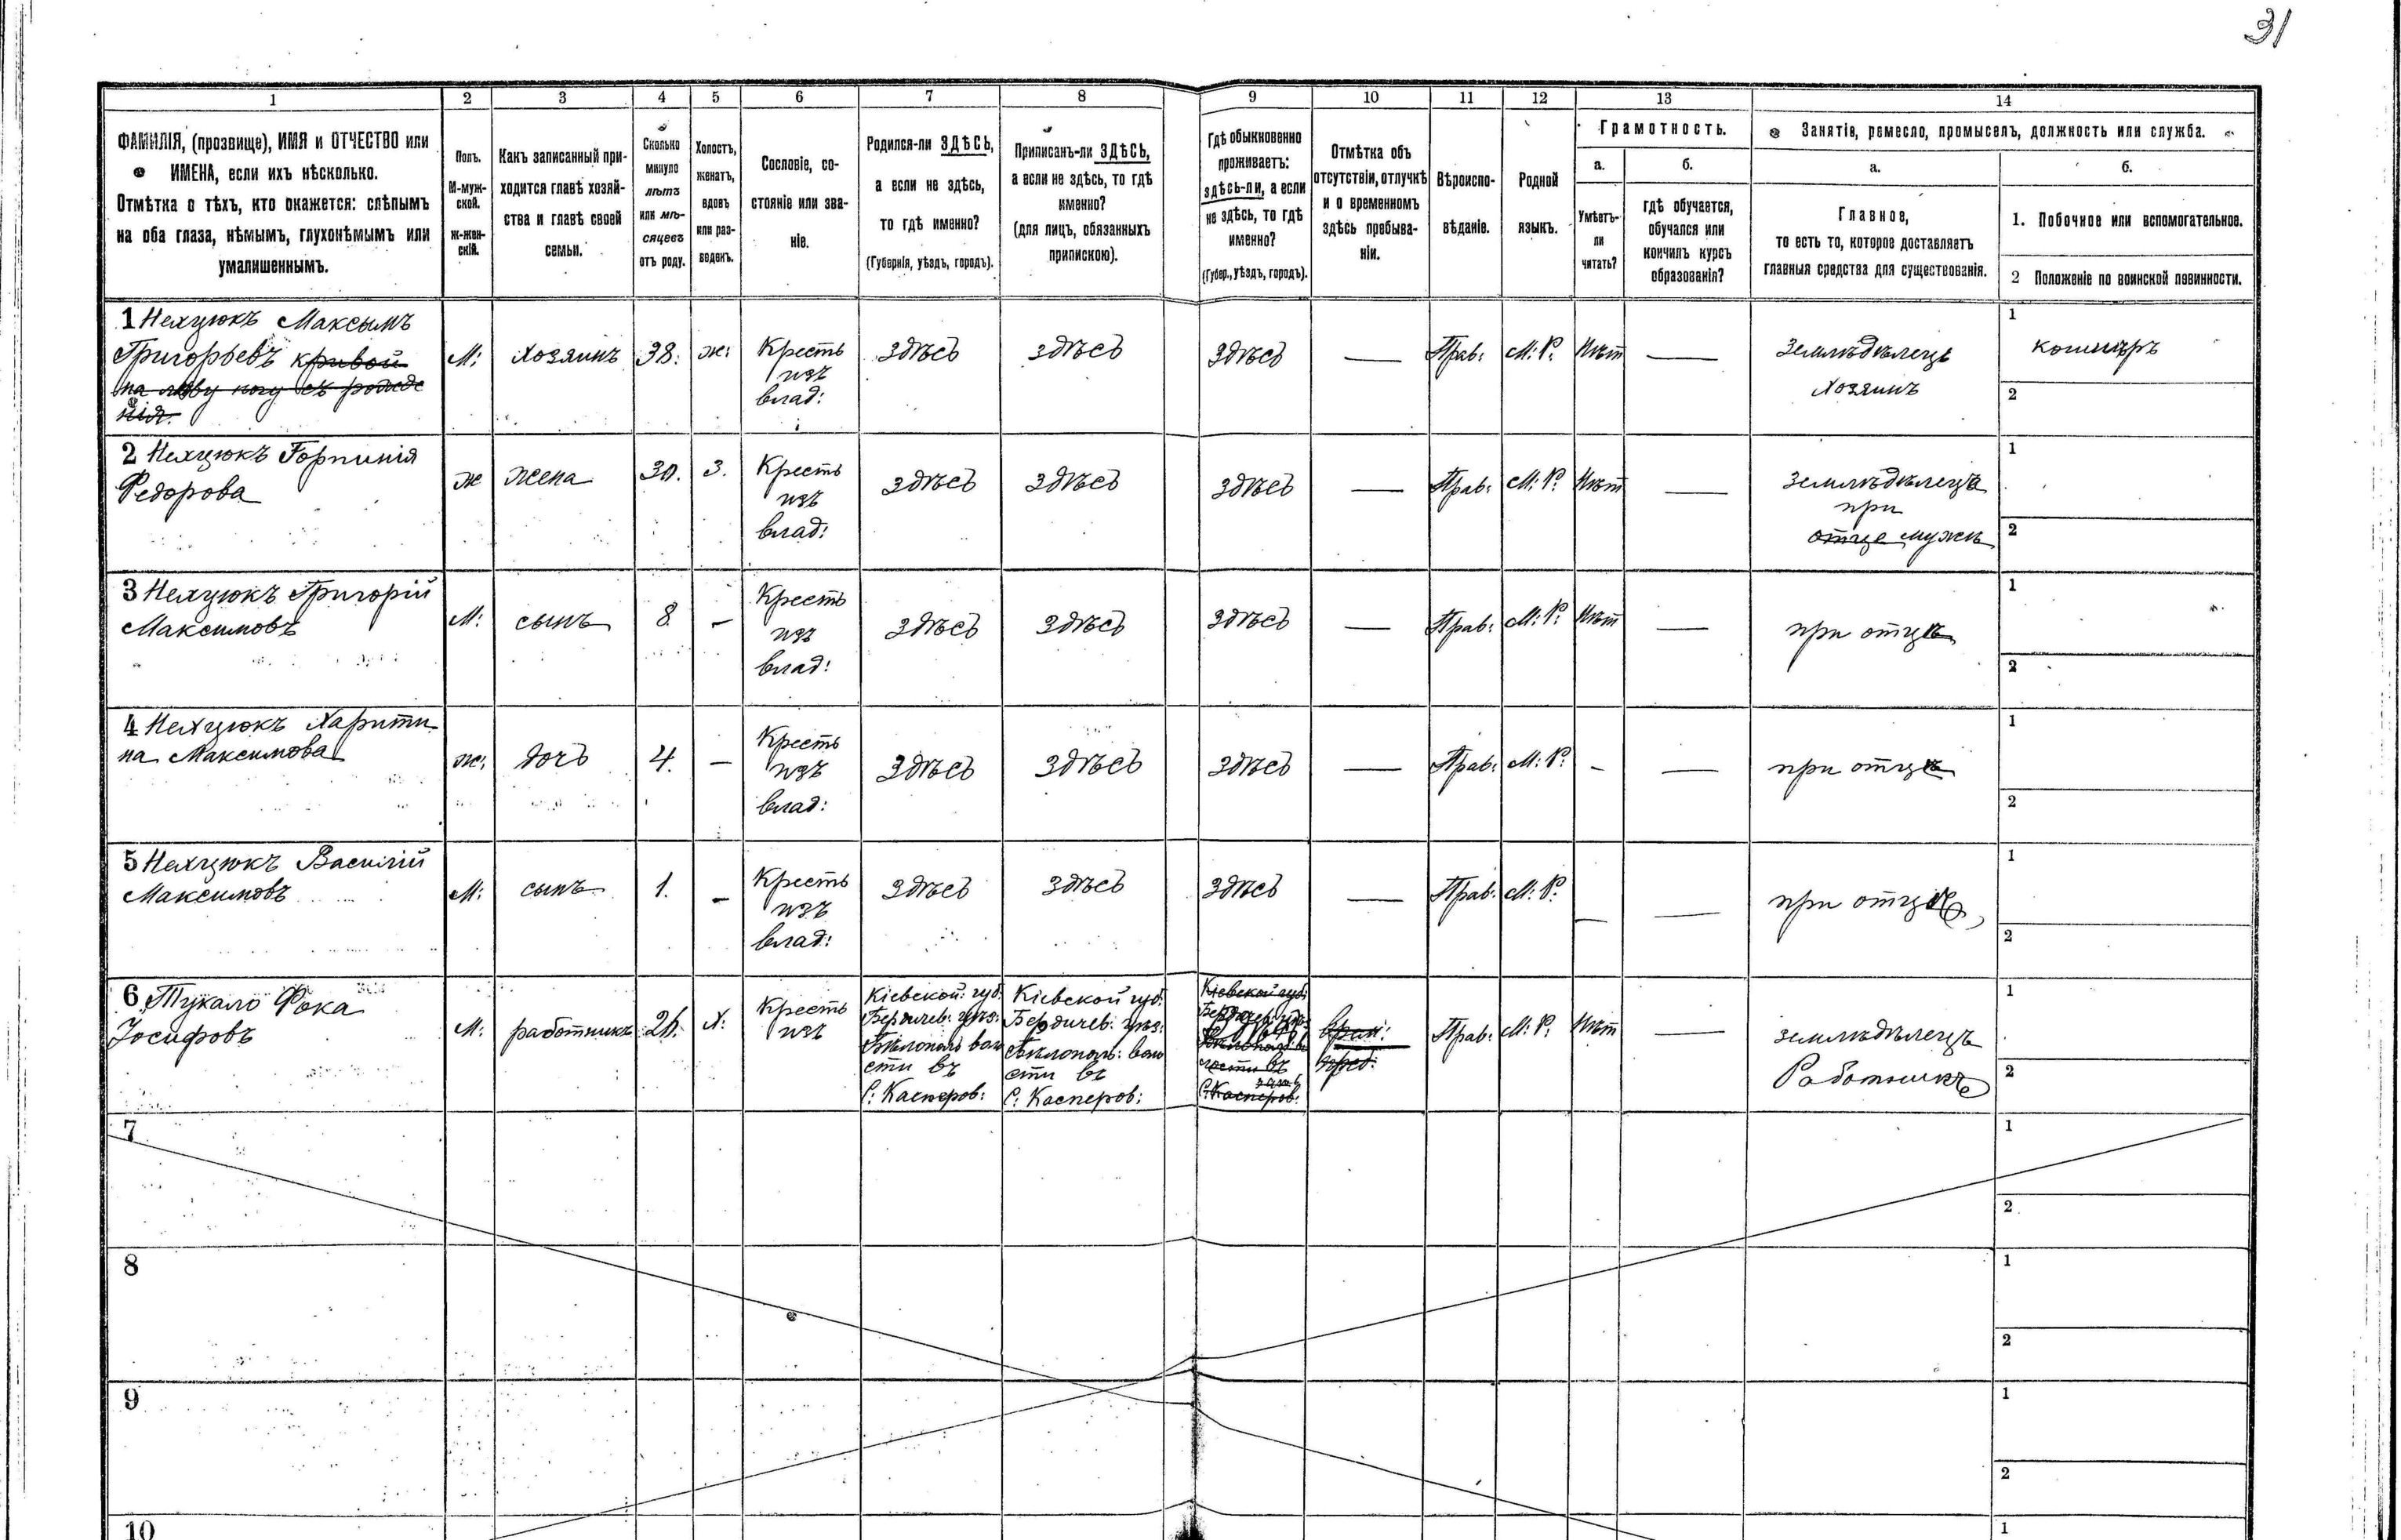 31
1 2 3 4 5 6 7 8 9 10 11 12 13 14
ФАМИЛІЯ, (прозвище), ИМЯ и ОТЧЕСТВО или
ИМЕНА, если ихъ нѣсколько.
Отмѣтка о тѣхъ, кто окажется: слѣпымъ
на оба глаза, нѣмымъ, глухонѣмымъ или
умалишеннымъ.
Полъ.
М-муж-
ской.
Ж-жен-
скій.
Какъ записанный при-
ходится главѣ хозяй-
ства и главѣ своей
семьи.
Сколько
минуло
лѣтъ
или мѣ-
сяцевъ
отъ роду.
Холостъ,
женатъ,
вдовъ
или раз-
веденъ.
Сословіе, со-
стояніе или зва-
ніе.
Родился-ли ЗДѢСЬ,
а если не здѣсь,
то гдѣ именно?
(Губернія, уѣздъ, городъ).
Приписанъ-ли ЗДѢСЬ,
а если не здѣсь, то гдѣ
именно?
(для лицъ, обязанныхъ
припискою).
Гдѣ обыкновенно
проживаетъ:
здѣсь-ли, а если
не здѣсь, то гдѣ
именно?
(Губер., уѣздъ, городъ).
Отмѣтка объ
отсутствіи, отлучкѣ
и о временномъ
здѣсь пребыва-
ніи.
Вѣроиспо-
вѣданіе.
Родной
языкъ.
Грамотность.
а.
Умѣетъ-
ли
читать?
б.
гдѣ обучается,
обучался или
кончилъ курсъ
образованія?
Занятіе, ремесло, промыселъ, должность или служба.
а.
Главное,
то есть то, которое доставляетъ
главныя средства для существованія.
б.
1. Побочное или вспомогательное.
2 Положеніе по воинской повинности.
1 Нехцюкъ Максымъ
Григорьевъ кривой
на лѣву ногу съ рожде
нія.
М:
хозяинъ
38.
ж:
Кресть
изъ
влад:
здѣсь
здѣсь
здѣсь
—
Прав:
М: Р:
Нѣт
—
Землѣдѣлецъ
Хозяинъ
1
2
2 Нехцюкъ Горпинія
Федорова
ж
жена
30.
З.
Кресть
изъ
влад:
здѣсь
здѣсь
здѣсь
—
Прав:
М: Р:
Нѣт
—
землѣдѣлецъ
при
отце мужѣ
1
2
3 Нехцюкъ Григорій
Максимовъ
М:
сынъ
8
–
Кресть
изъ
влад:
здѣсь
здѣсь
здѣсь
—
Прав:
М: Р:
Нѣт
—
при отцѣ
1
2
4 Нехцюкъ Харити
на Максимова
ж:
дочь
4.
–
Кресть
изъ
влад:
здѣсь
здѣсь
здѣсь
—
Прав:
М: Р:
–
—
при отцѣ
1
2
5 Нехцюкъ Василій
Максимовъ
М:
сынъ
1.
–
Кресть
изъ
влад:
здѣсь
здѣсь
здѣсь
—
Прав:
М: Р:
—
—
при отцѣ
1
2
6 Тукало Фока
Іосифовъ
М:
работникъ
Х:
Кресть
изъ
Кіевской: губ:
Бердичев: уѣз:
Бѣлополь вол
сти въ
С: Касперов:
Кіевской губ:
Бердичев: уѣз:
Бѣлополь: воло
сти въ
С: Касперов:
Кіевской губ:
С: Касперов:
Прав:
М: Р:
Нѣт
—
землѣдѣлецъ
Работникъ
1
2
7
1
2
8
1
2
9
1
2
10
1